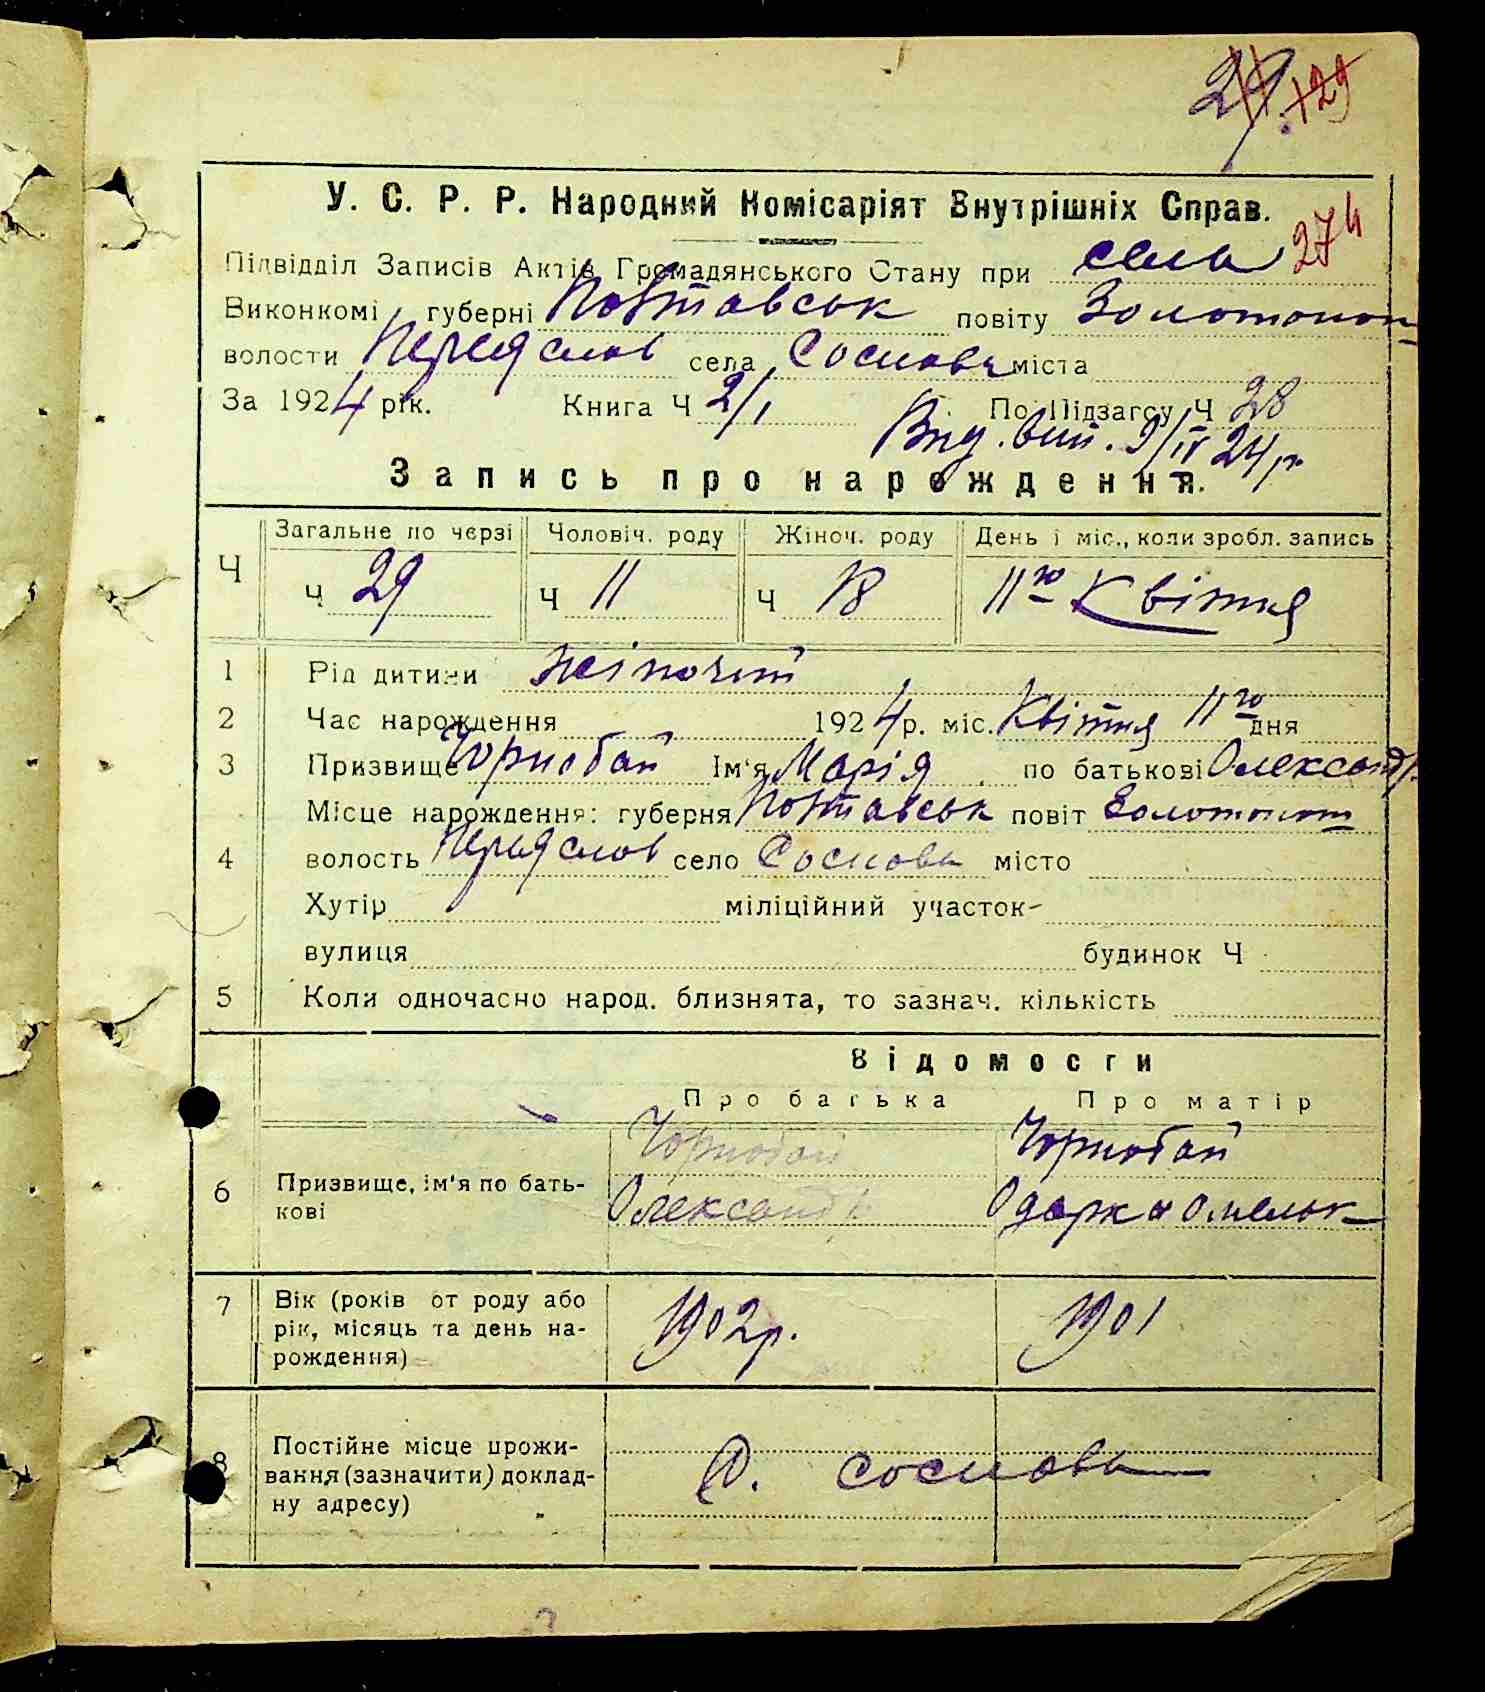 29. 129
У. С. Р. Р. Народний Комісаріят Внутрішніх Справ.
274
Підвідділ Записів Актів Громадянського Стану при села
Виконкомі губерні Полтавськ повіту Золотонош
волости Переяслов села Соснова міста
За 1924 рік. Книга Ч 2/1 По Підзагсу Ч 28
9/IV 24 р.
Запись про нарождення.
Ч Загальне по черзі Чоловіч. роду Жіноч. роду День і міс., коли зробл. запись
Ч 29 Ч 11 Ч 18 11го Квітня
1 Рід дитини жіночий
2 Час нарождення 1924 р. міс. Квітня 11го дня
3 Призвище Чорнобай Ім'я Марія по батькові Олександр.
Місце нарождення: губерня Полтавськ повіт Золотонош
4 волость Переяслов село Соснова місто
Хутір міліційний участок-
вулиця будинок Ч
5 Коли одночасно народ. близнята, то зазнач. кількість
Відомости
Про батька Про матір
Чорнобай Чорнобай
6 Призвище, ім'я по бать-
кові
Олександр Одарка Омельк
7 Вік (років от роду або
рік, місяць та день на-
рождення)
1902р. 1901
8 Постійне місце прожи-
вання (зазначити) доклад-
ну адресу)
с. Соснова